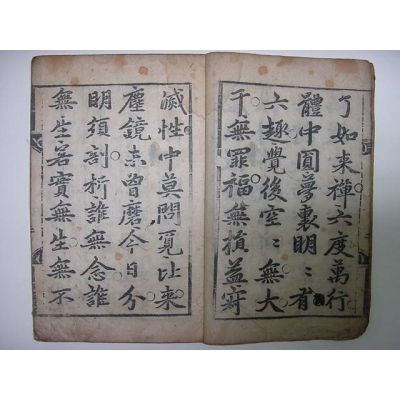 了如來禪六度萬行
體中圓夢裏明〻有
六趣覺後空〻無大
千無罪福無損益寂
滅性中莫問覓比來
塵鏡未曾磨今日分
明須剖析誰無念誰
無生若實無生無不